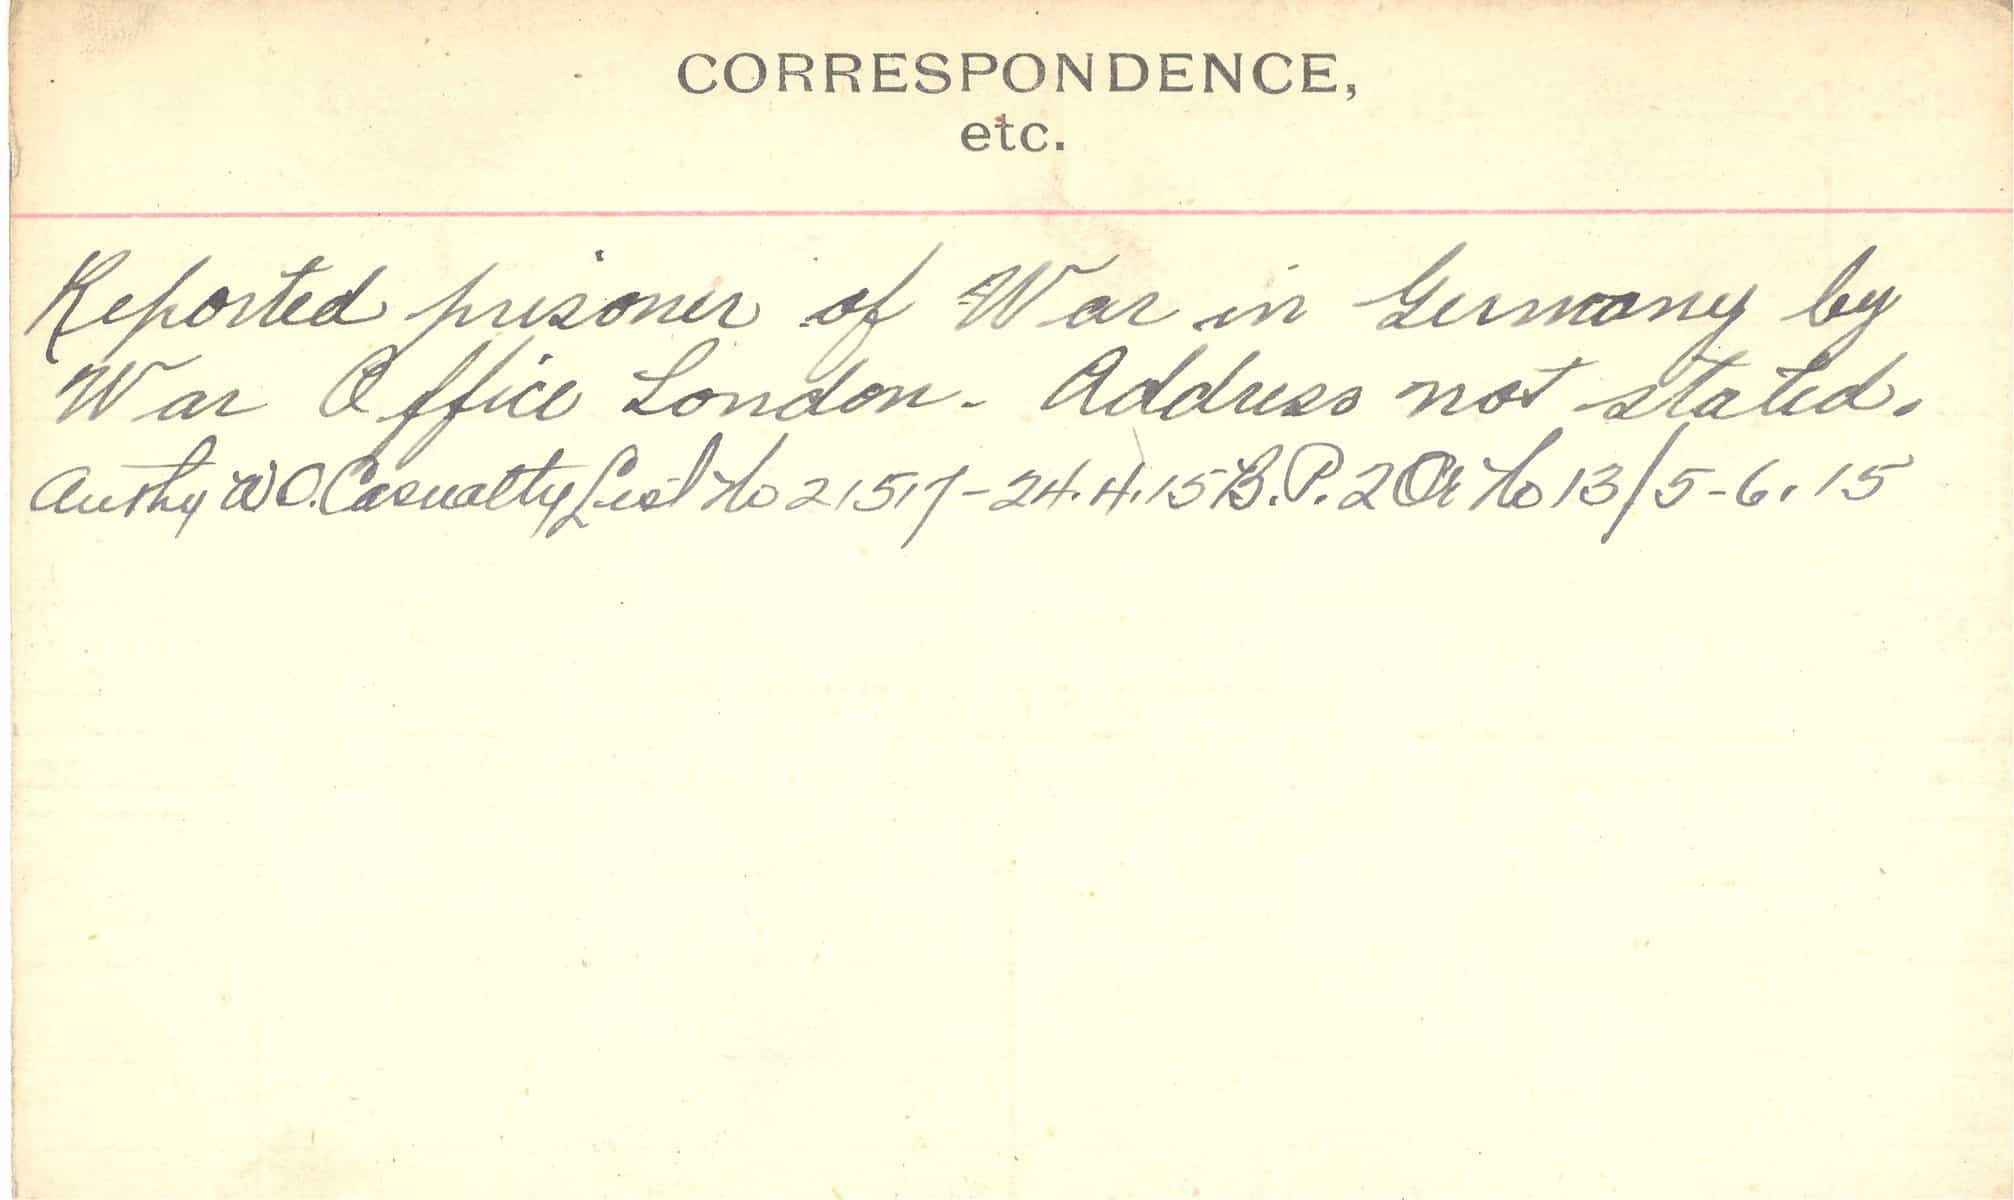 CORRESPONDENCE,
etc.
Reported prisoner of War in Germany by
War Office London - Address not stated.
Authy W.O. Casualty List No 21517 - 24.4.15 B.P. 2 Or No 13/5-6.15